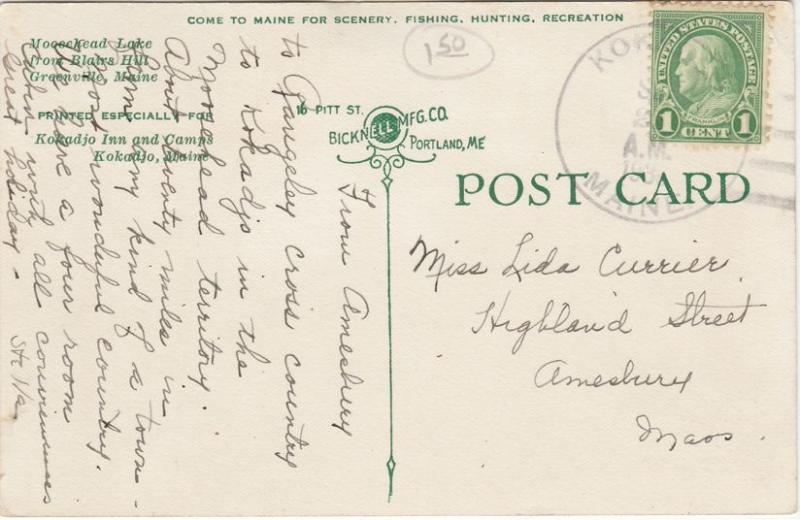 COME TO MAINE FOR SCENERY, FISHING, HUNTING, RECREATION
Moosehead Lake
from Blairs Hill
Greenville, Maine
PRINTED ESPECIALLY FOR
Kokadjo Inn and Camps
Kokadjo, Maine
1 50
16 PITT ST.
BICKNELL MFG. CO.
PORTLAND, ME
POST CARD
KOK
A.M.
MAINE
UNITED STATES POSTAGE
FRANKLIN
1 CENT 1
From Amesbury
to Rangeley cross country
to Kokadjo in the
Moosehead territory.
About twenty miles in
from any kind of a town -
Most wonderful country.
We have a four room
cabin with all conviniences
Great holiday -
Miss Lida Currier
Highland Street
Amesbury
Mass.